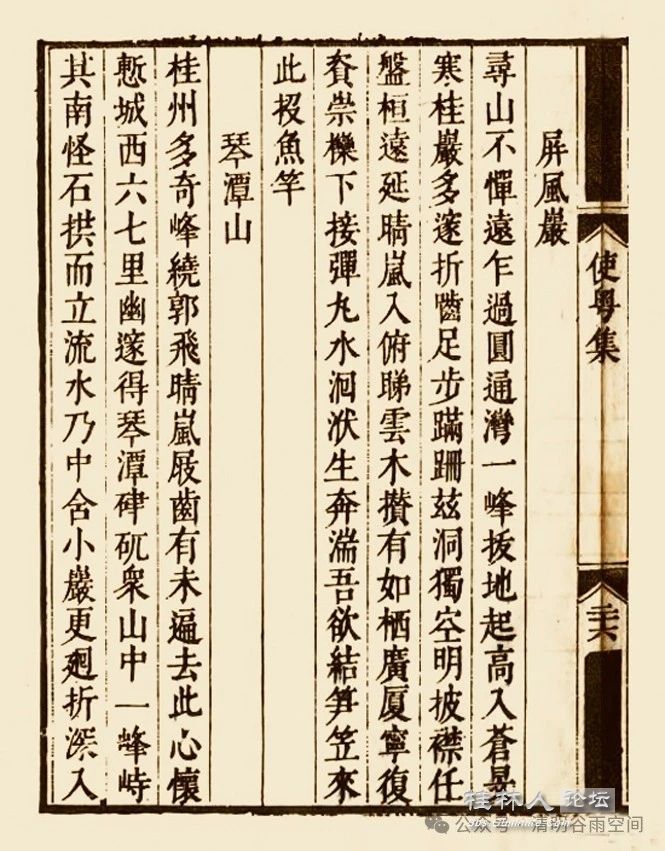 使粤集
屏風巖
尋山不憚遠乍過圓通灣一峰拔地起高入蒼旻
寒桂巖多邃折足步蹣跚兹洞獨空明披襟任
盤桓遠延晴嵐入俯睇雲木攢有如栖廣厦寧復
崇下接彈丸水洄洑生奔湍吾欲結笋笠來
此投魚竿
琴潭山
桂州多奇峰繞郭飛晴嵐屐齒有未遍去此心懷
慙城西六七里幽邃得琴潭硉矹衆山中一峰峙
其南怪石拱而立流水乃中含小巖更廻折深入
桂林人论坛
公众号 · 清明谷雨空间